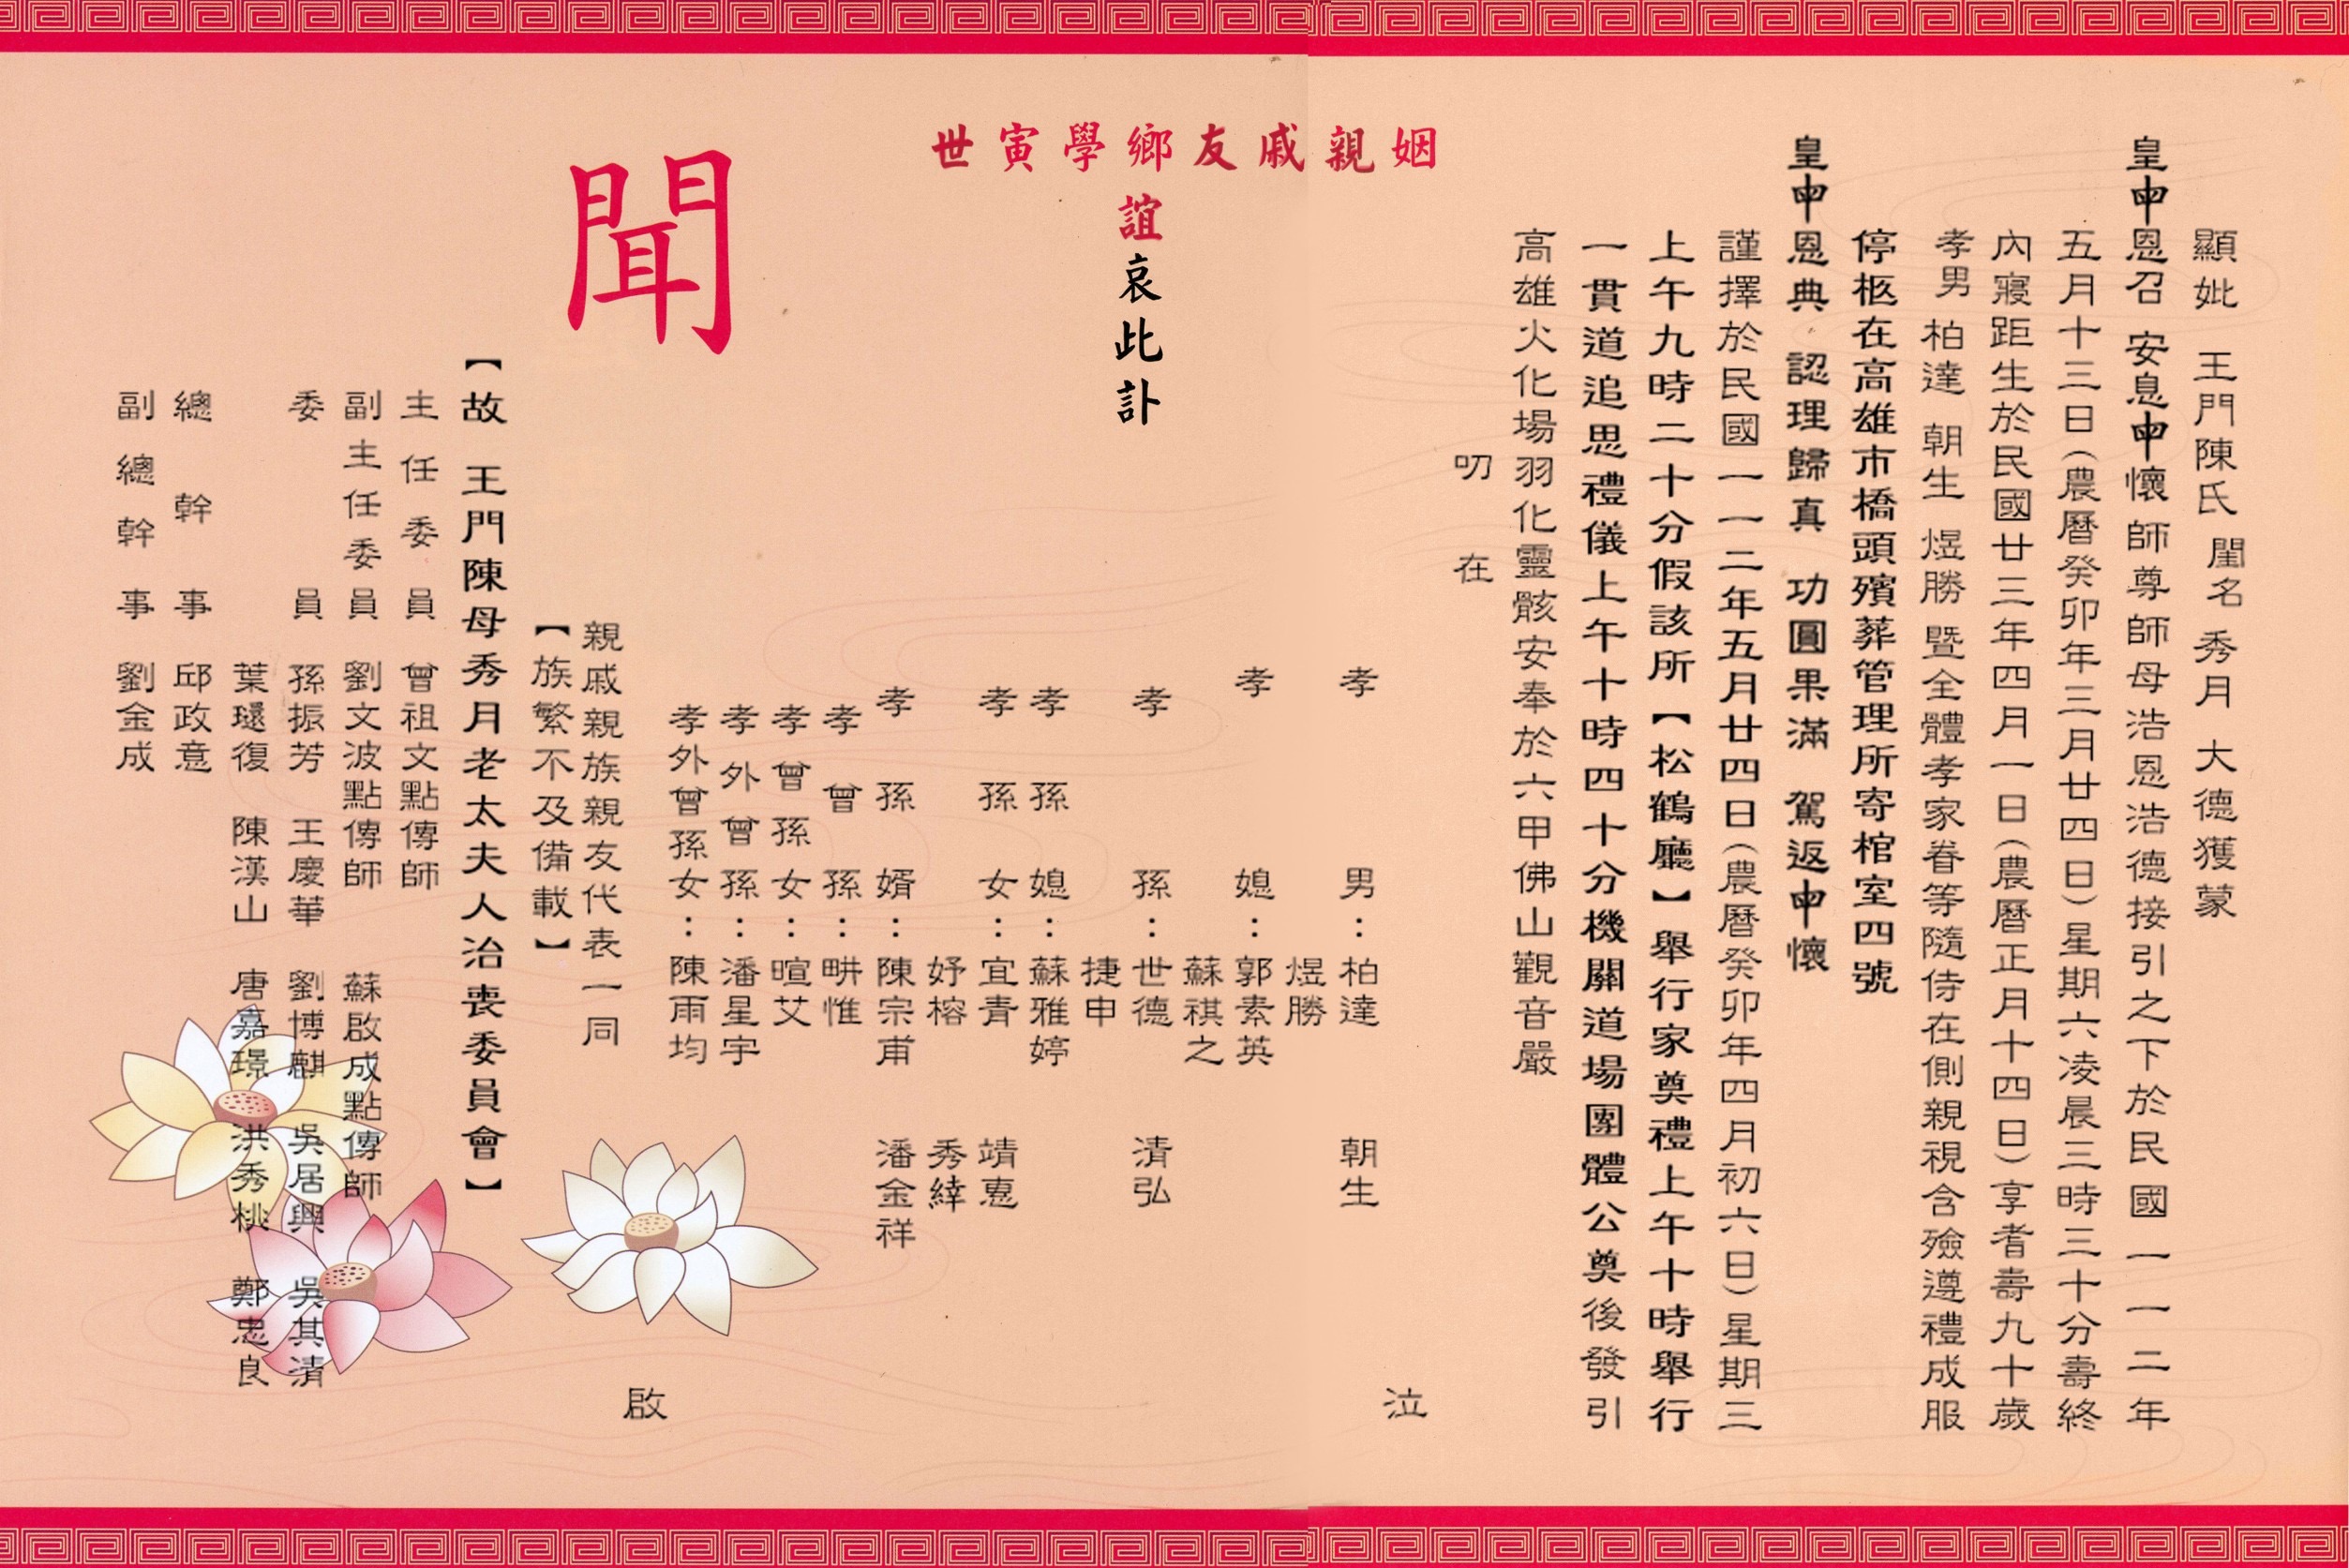 顯妣 王門陳氏 閨名 秀月 大德獲蒙
皇申恩召 安息申懷 師尊師母浩恩浩德接引之下於民國一一二年
五月十三日(農曆癸卯年三月廿四日)星期六凌晨三時三十分壽終
內寢距生於民國廿三年四月一日(農曆正月十四日)享耆壽九十歲
孝男 柏達 朝生 煜勝 暨全體孝家眷等隨侍在側親視含殮遵禮成服
停柩在高雄市橋頭殯葬管理所寄棺室四號
皇申恩典 認理歸真 功圓果滿 駕返申懷
謹擇於民國一一二年五月廿四日(農曆癸卯年四月初六日)星期三
上午九時二十分假該所【松鶴廳】舉行家奠禮上午十時舉行
一貫道追思禮儀上午十時四十分機關道場團體公奠後發引
高雄火化場羽化靈骸安奉於六甲佛山觀音嚴
叨 在
姻親戚友鄉學寅世
誼哀此訃
聞
孝男:柏達 朝生
煜勝
孝媳:郭素英
蘇祺之
孝孫:世德 清弘
捷申
孝孫媳:蘇雅婷
孝孫女:宜青 靖惠
妤榕 秀緯
孝孫婿:陳宗甫 潘金祥
孝曾孫:畊惟
孝曾孫女:暄艾
孝外曾孫:潘星宇
孝外曾孫女:陳雨均
泣
親戚親族親友代表一同
【族繁不及備載】
啟
【故 王門陳母秀月老太夫人治喪委員會】
主任委員 曾祖文點傳師
副主任委員 劉文波點傳師 蘇啟成點傳師
委員 孫振芳 王慶華 劉博麒 吳居興 吳其清
葉璦復 陳漢山 唐嘉璟 洪秀桃 鄭忠良
總幹事 邱政意
副總幹事 劉金成